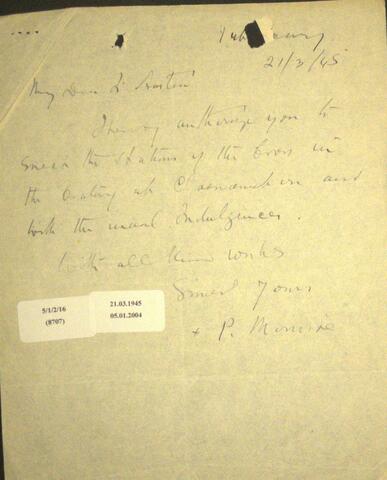 21/3/45
My Dear
I hereby authorize you to
erect the Stations of the Cross in
the Oratory at and
with the usual Indulgences.
With all kind wishes
Yours
+ P.
5/1/2/16
(8707)
21.03.1945
05.01.2004